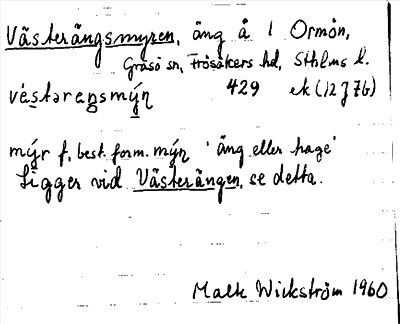 Västerängsmyren, äng å 1 Ormön,
Gräsö sn, Frösåkers hd, Sthlms l.
vèstəraŋsmýn 429 ek (12 J 7b)
mýr f. best. form. mýn 'äng eller hage'
Ligger vid Västerängen, se detta.
Malte Wickström 1960